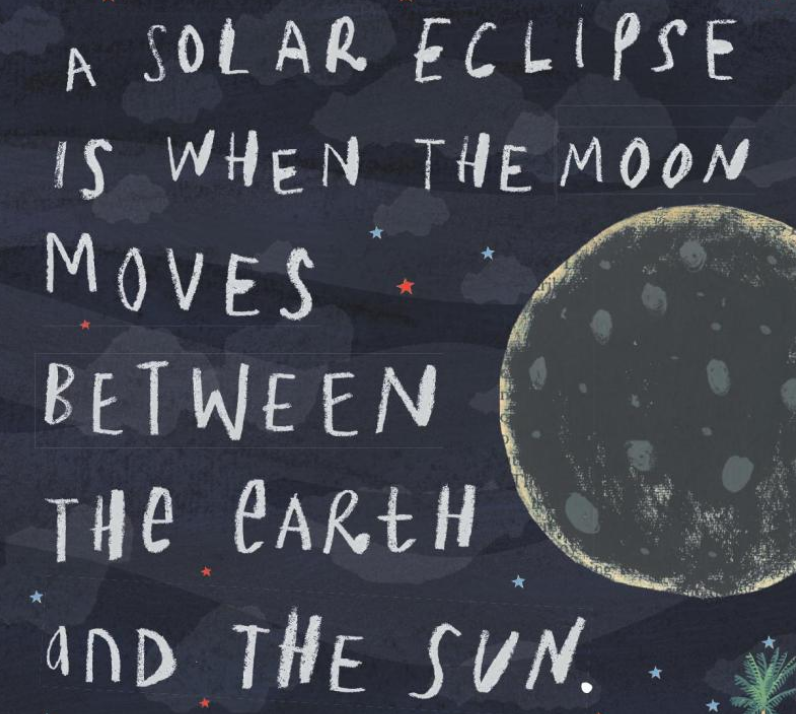 A SOLAR ECLIPSE
IS WHEN THE MOON
MOVES
BETWEEN
THe eARtH
anD THE SUN.